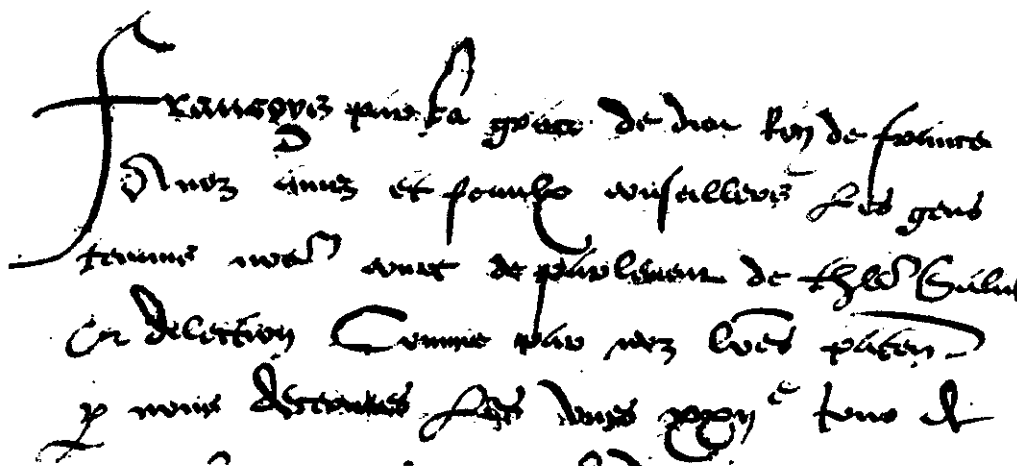 Françoys par la grace de dieu Roy de france
A noz amez et feaulx conseillers les gens
tenans nostre court de parlement de thle Salut
Et delection Comme par noz lres paten
p nous decernees les xxii e jour d